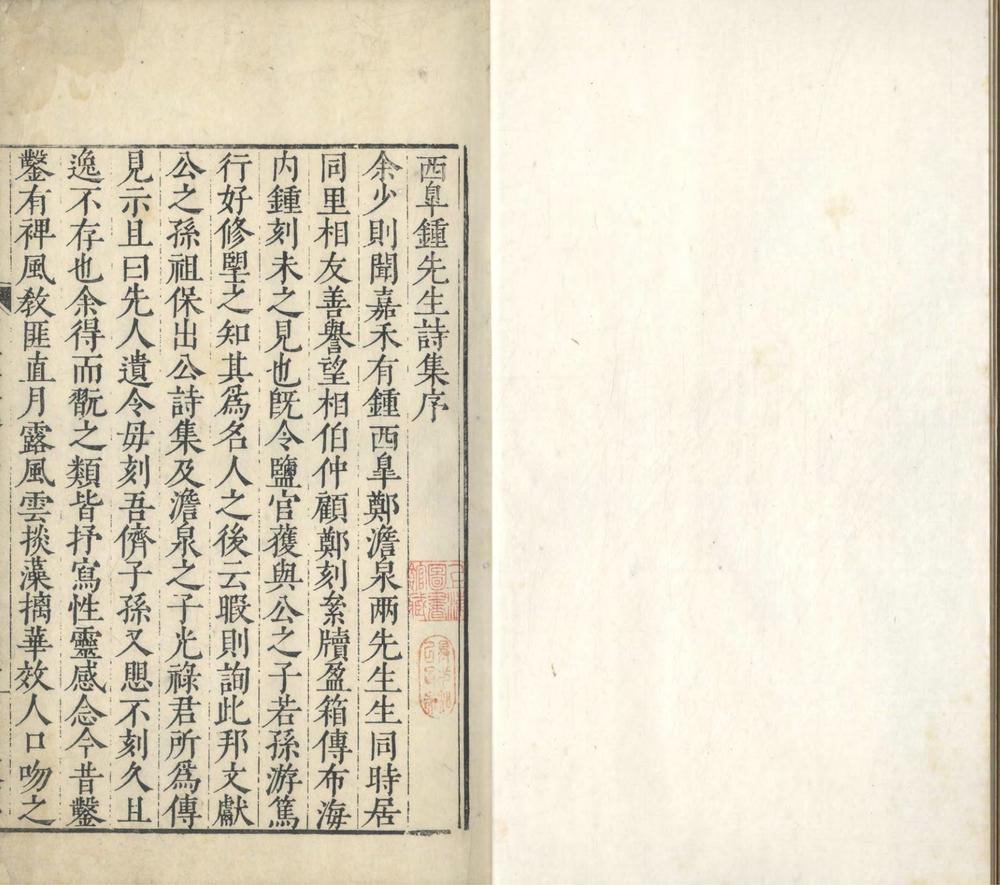 西臯鍾先生詩集序
余少則聞嘉禾有鍾西臯鄭澹泉两先生生同時居
同里相友善譽望相伯仲顧鄭刻絫牘盈箱傳布海
内鍾刻未之見也旣令鹽官獲與公之子若孫游篤
行好修朢之知其爲名人之後云暇則詢此邦文獻
公之孫祖保出公詩集及澹泉之子光祿君所爲傳
見示且曰先人遺令毋刻吾儕子孫又思不刻久且
逸不存也余得而翫之類皆抒寫性靈感念今昔鑿
鑿有裨風敎匪直月露風雲掞藻摛華效人口吻之
圖書
館藏